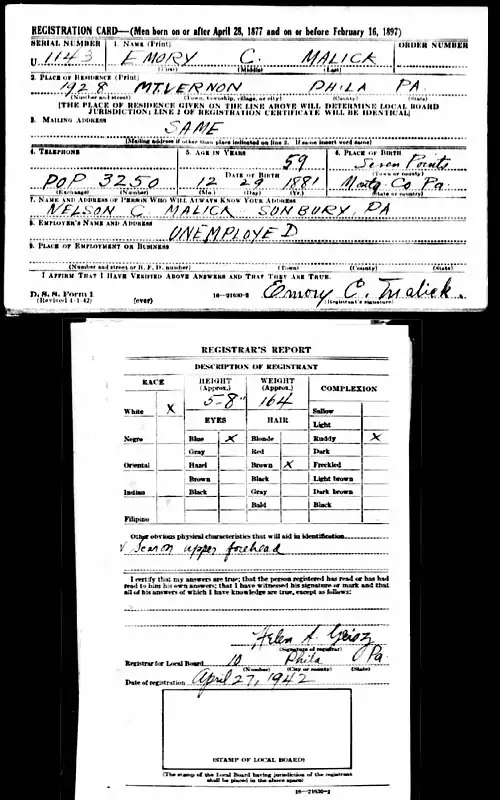 REGISTRATION CARD—(Men born on or after April 28, 1877 and on or before February 16, 1897)
SERIAL NUMBER 1. NAME (Print) ORDER NUMBER
U 1143 EMORY C. MALICK
(First) (Middle) (Last)
2. PLACE OF RESIDENCE (Print)
1928 MT. VERNON PHILA PA.
(Number and street) (Town, township, village, or city) (County) (State)
[THE PLACE OF RESIDENCE GIVEN ON THE LINE ABOVE WILL DETERMINE LOCAL BOARD
JURISDICTION; LINE 2 OF REGISTRATION CERTIFICATE WILL BE IDENTICAL]
3. MAILING ADDRESS
SAME
[Mailing address if other than place indicated on line 2. If same insert word same]
4. TELEPHONE 5. AGE IN YEARS 6. PLACE OF BIRTH
59 Seven Points
DATE OF BIRTH (Town or county)
POP 3250 12 29 1881 Montg. Co Pa.
(Exchange) (Number) (Mo.) (Day) (Yr.) (State or country)
7. NAME AND ADDRESS OF PERSON WHO WILL ALWAYS KNOW YOUR ADDRESS
NELSON C MALICK SUNBURY, PA
8. EMPLOYER'S NAME AND ADDRESS
UNEMPLOYED
9. PLACE OF EMPLOYMENT OR BUSINESS
(Number and street or R. F. D. number) (Town) (County) (State)
I AFFIRM THAT I HAVE VERIFIED ABOVE ANSWERS AND THAT THEY ARE TRUE.
D. S. S. Form 1
(Revised 4-1-42) (over) 16—21630-2 Emory C. Malick.
(Registrant's signature)
REGISTRAR'S REPORT
DESCRIPTION OF REGISTRANT
RACE HEIGHT (Approx.) WEIGHT (Approx.) COMPLEXION
5-8" 164
White X Sallow
EYES HAIR Light
Negro Blue X Blonde Ruddy X
Gray Red Dark
Oriental Hazel Brown X Freckled
Brown Black Light brown
Indian Black Gray Dark brown
Bald Black
Filipino
Other obvious physical characteristics that will aid in identification
√ Scar on upper forehead
I certify that my answers are true; that the person registered has read or has had
read to him his own answers; that I have witnessed his signature or mark and that
all of his answers of which I have knowledge are true, except as follows:
Helen A. Geisz
(Signature of registrar)
Registrar for Local Board 10 Phila Pa
(Number) (City or county) (State)
Date of registration April 27, 1942
(STAMP OF LOCAL BOARD)
(The stamp of the Local Board having jurisdiction of the registrant
shall be placed in the above space)
16—21630-2